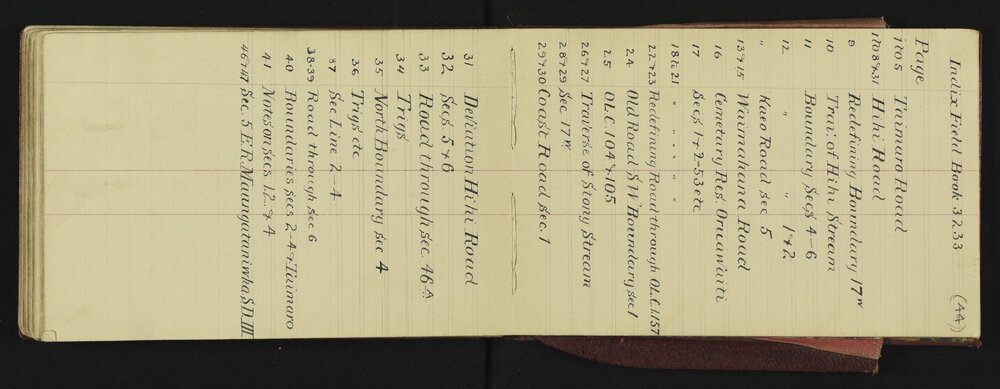 Index Field Book 3233 (AA)
Page
1 to 5 Taimaro Road
1 to 8 & 31 Hihi Road
9 Redefining Boundary 17W
10 Trav: of Hihi Stream
11 Boundary Secs 4-6
12 " " 1&2
" Kaeo Road Sec 5
13 & 15 Wainohana Road
16 Cemetary Res. Oruawiti
17 Secs 1 & 2-53 etc
18 to 21 " " " " "
22 & 23 Redefining Road through OLC. 157
24 Old Road SW Boundary Sec 1
25 OLC. 104 & 105
26 & 27 Traverse of Stony Stream
28 & 29 Sec. 17W
29 & 30 Coast Road Sec. 1
31 Deviation Hihi Road
32 Secs 5 & 6
33 Road through Sec. 46A
34 Trigs
35 North Boundary Sec 4
36 Trigs etc
37 Sec Line 2-4
38-39 Road through Sec 6
40 Boundaries Secs 2-4 & Taimaro
41 Notes on Secs 1.2. & 4
46 & 47 Sec. 5 E.R. Maungataniwha S.D. III